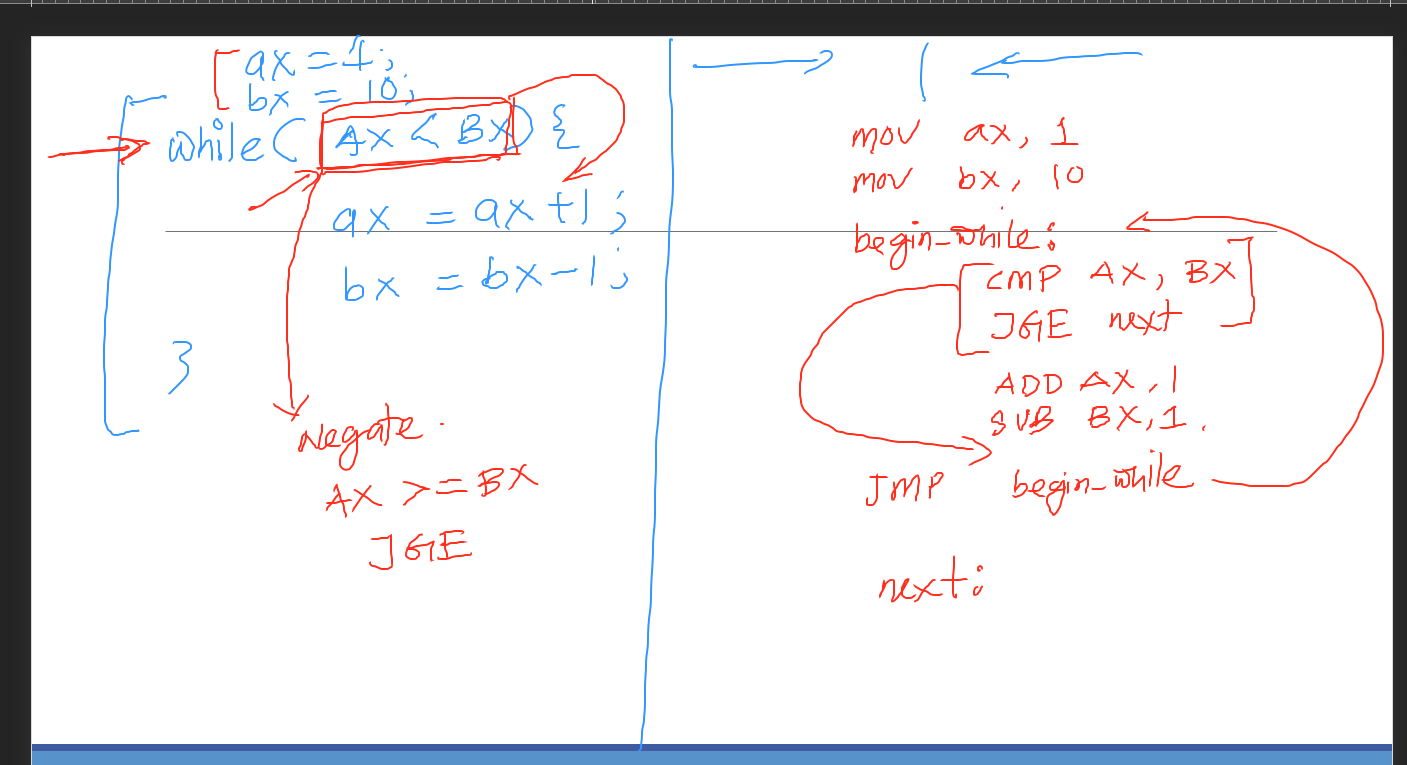 ax = 1;
bx = 10;
while( AX < BX) {
ax = ax +1;
bx = bx-1;
}
Negate.
AX >= BX
JGE
mov ax, 1
mov bx, 10
begin_while:
CMP AX, BX
JGE next
ADD AX, 1
SUB BX, 1.
JMP begin_while
next: